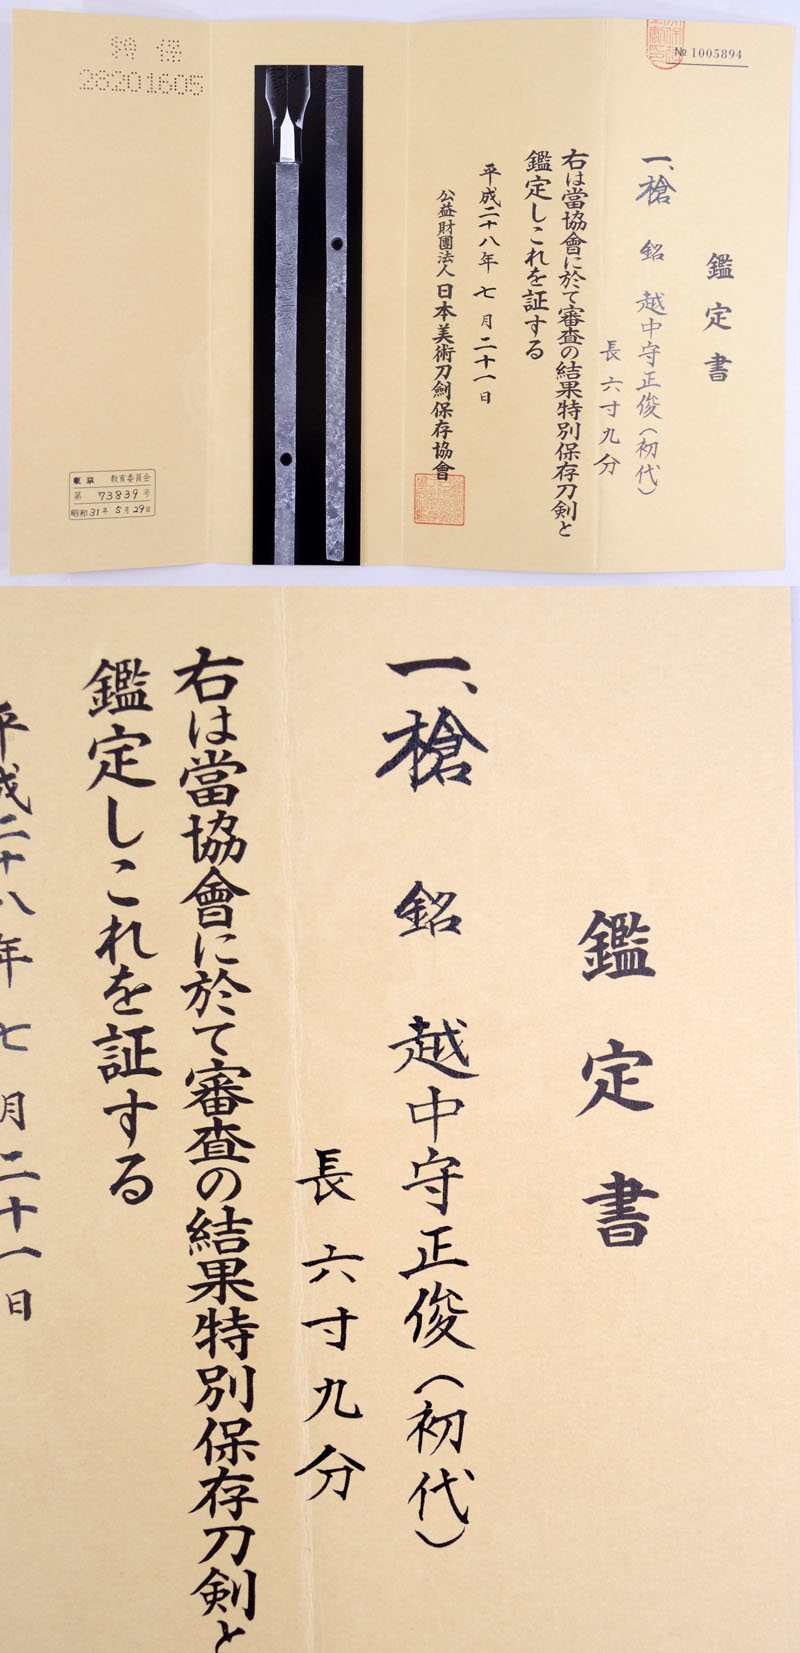 № 1005894
鑑定書
一、槍 銘 越中守正俊(初代)
長六寸九分
右は當協會に於て審査の結果特別保存刀剣と
鑑定しこれを証する
平成二十八年七月二十一日
公益財團法人日本美術刀劍保存協會
特保
28201605
東京 教育委員会
第 73839 号
昭和31年5月29日
鑑定書
一、槍 銘 越中守正俊(初代)
長六寸九分
右は當協會に於て審査の結果特別保存刀剣と
鑑定しこれを証する
平成二十八年七月二十一日